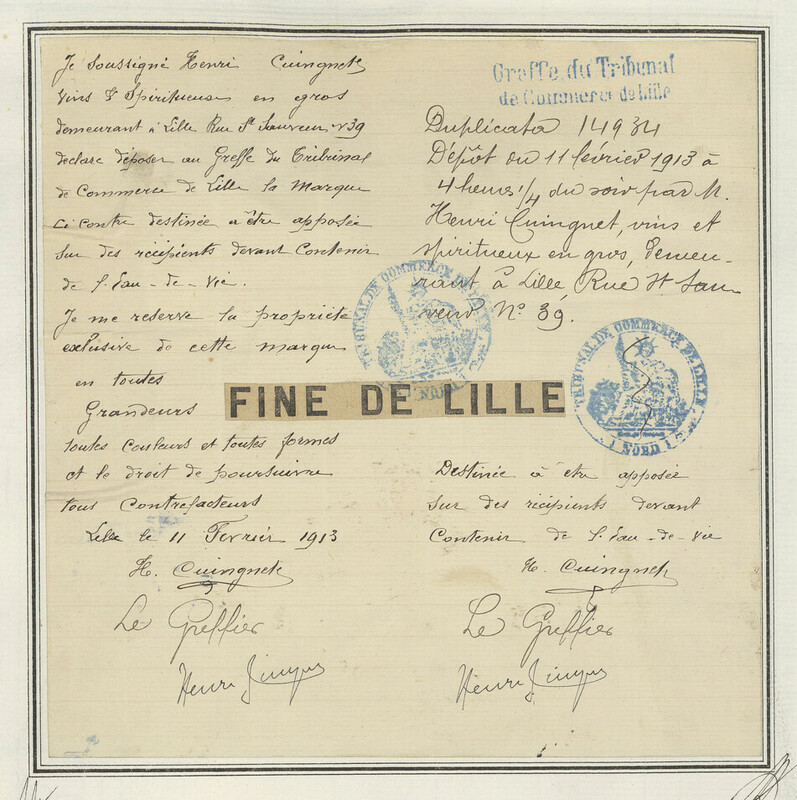 Je soussigné Henri Cuingnet
Vins & Spiritueux en gros
demeurant à Lille Rue St Sauveur n 39
déclare déposer au Greffe du Tribunal
de Commerce de Lille la Marque
ci contre destinée a être apposée
sur des récipients devant Contenir
de l'Eau-de-Vie.
Je me reserve la propriété
exclusive de cette marque
en toutes
Grandeurs
toutes couleurs et toutes formes
et le droit de poursuivre
tous Contrefacteurs
Lille le 11 Fevrier 1913
H. Cuingnet
Le Greffier
Henri
Greffe du Tribunal
de Commerce de Lille
Duplicata 14934
Dépôt du 11 février 1913 à
4 heures 1/4 du soir par M.
Henri Cuingnet, vins et
spiritueux en gros, demeu-
rant à Lille Rue St Sau-
veur No 39.
TRIBUNAL DE COMMERCE DE LILLE
NORD
TRIBUNAL DE COMMERCE DE LILLE
NORD
FINE DE LILLE
Destinée à être apposée
sur des récipients devant
Contenir de l'Eau-de-Vie
H. Cuingnet
Le Greffier
Henri